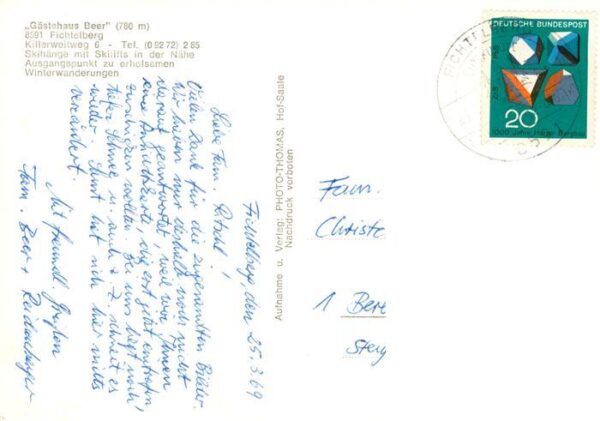 „Gästehaus Beer" (780 m)
8591 Fichtelberg
Killerweitweg 6 - Tel. (0 92 72) 2 65
Skihänge mit Skilifts in der Nähe
Ausgangspunkt zu erholsamen
Winterwanderungen
DEUTSCHE BUNDESPOST
20
1000 Jahre Harzer Bergbau
Aufnahme u. Verlag: PHOTO-THOMAS, Hof-Saale
Nachdruck verboten
Fichtelberg den 25.3.69
Liebe Fam.
Vielen Dank für die zugesandten Bilder.
Wir haben nur deshalb noch nicht
darauf geantwortet, weil wir Ihnen
eine Ansichtskarte, die erst jetzt eintrafen,
zusenden wollten. Bei uns liegt noch
tiefer Schnee u. auch z. Z. schneit es
wieder. Sonst hat sich hier nichts
verändert.
Mit freundl. Grüßen
Fam. Beer +
Fam.
Christe
1 Berl
Steg